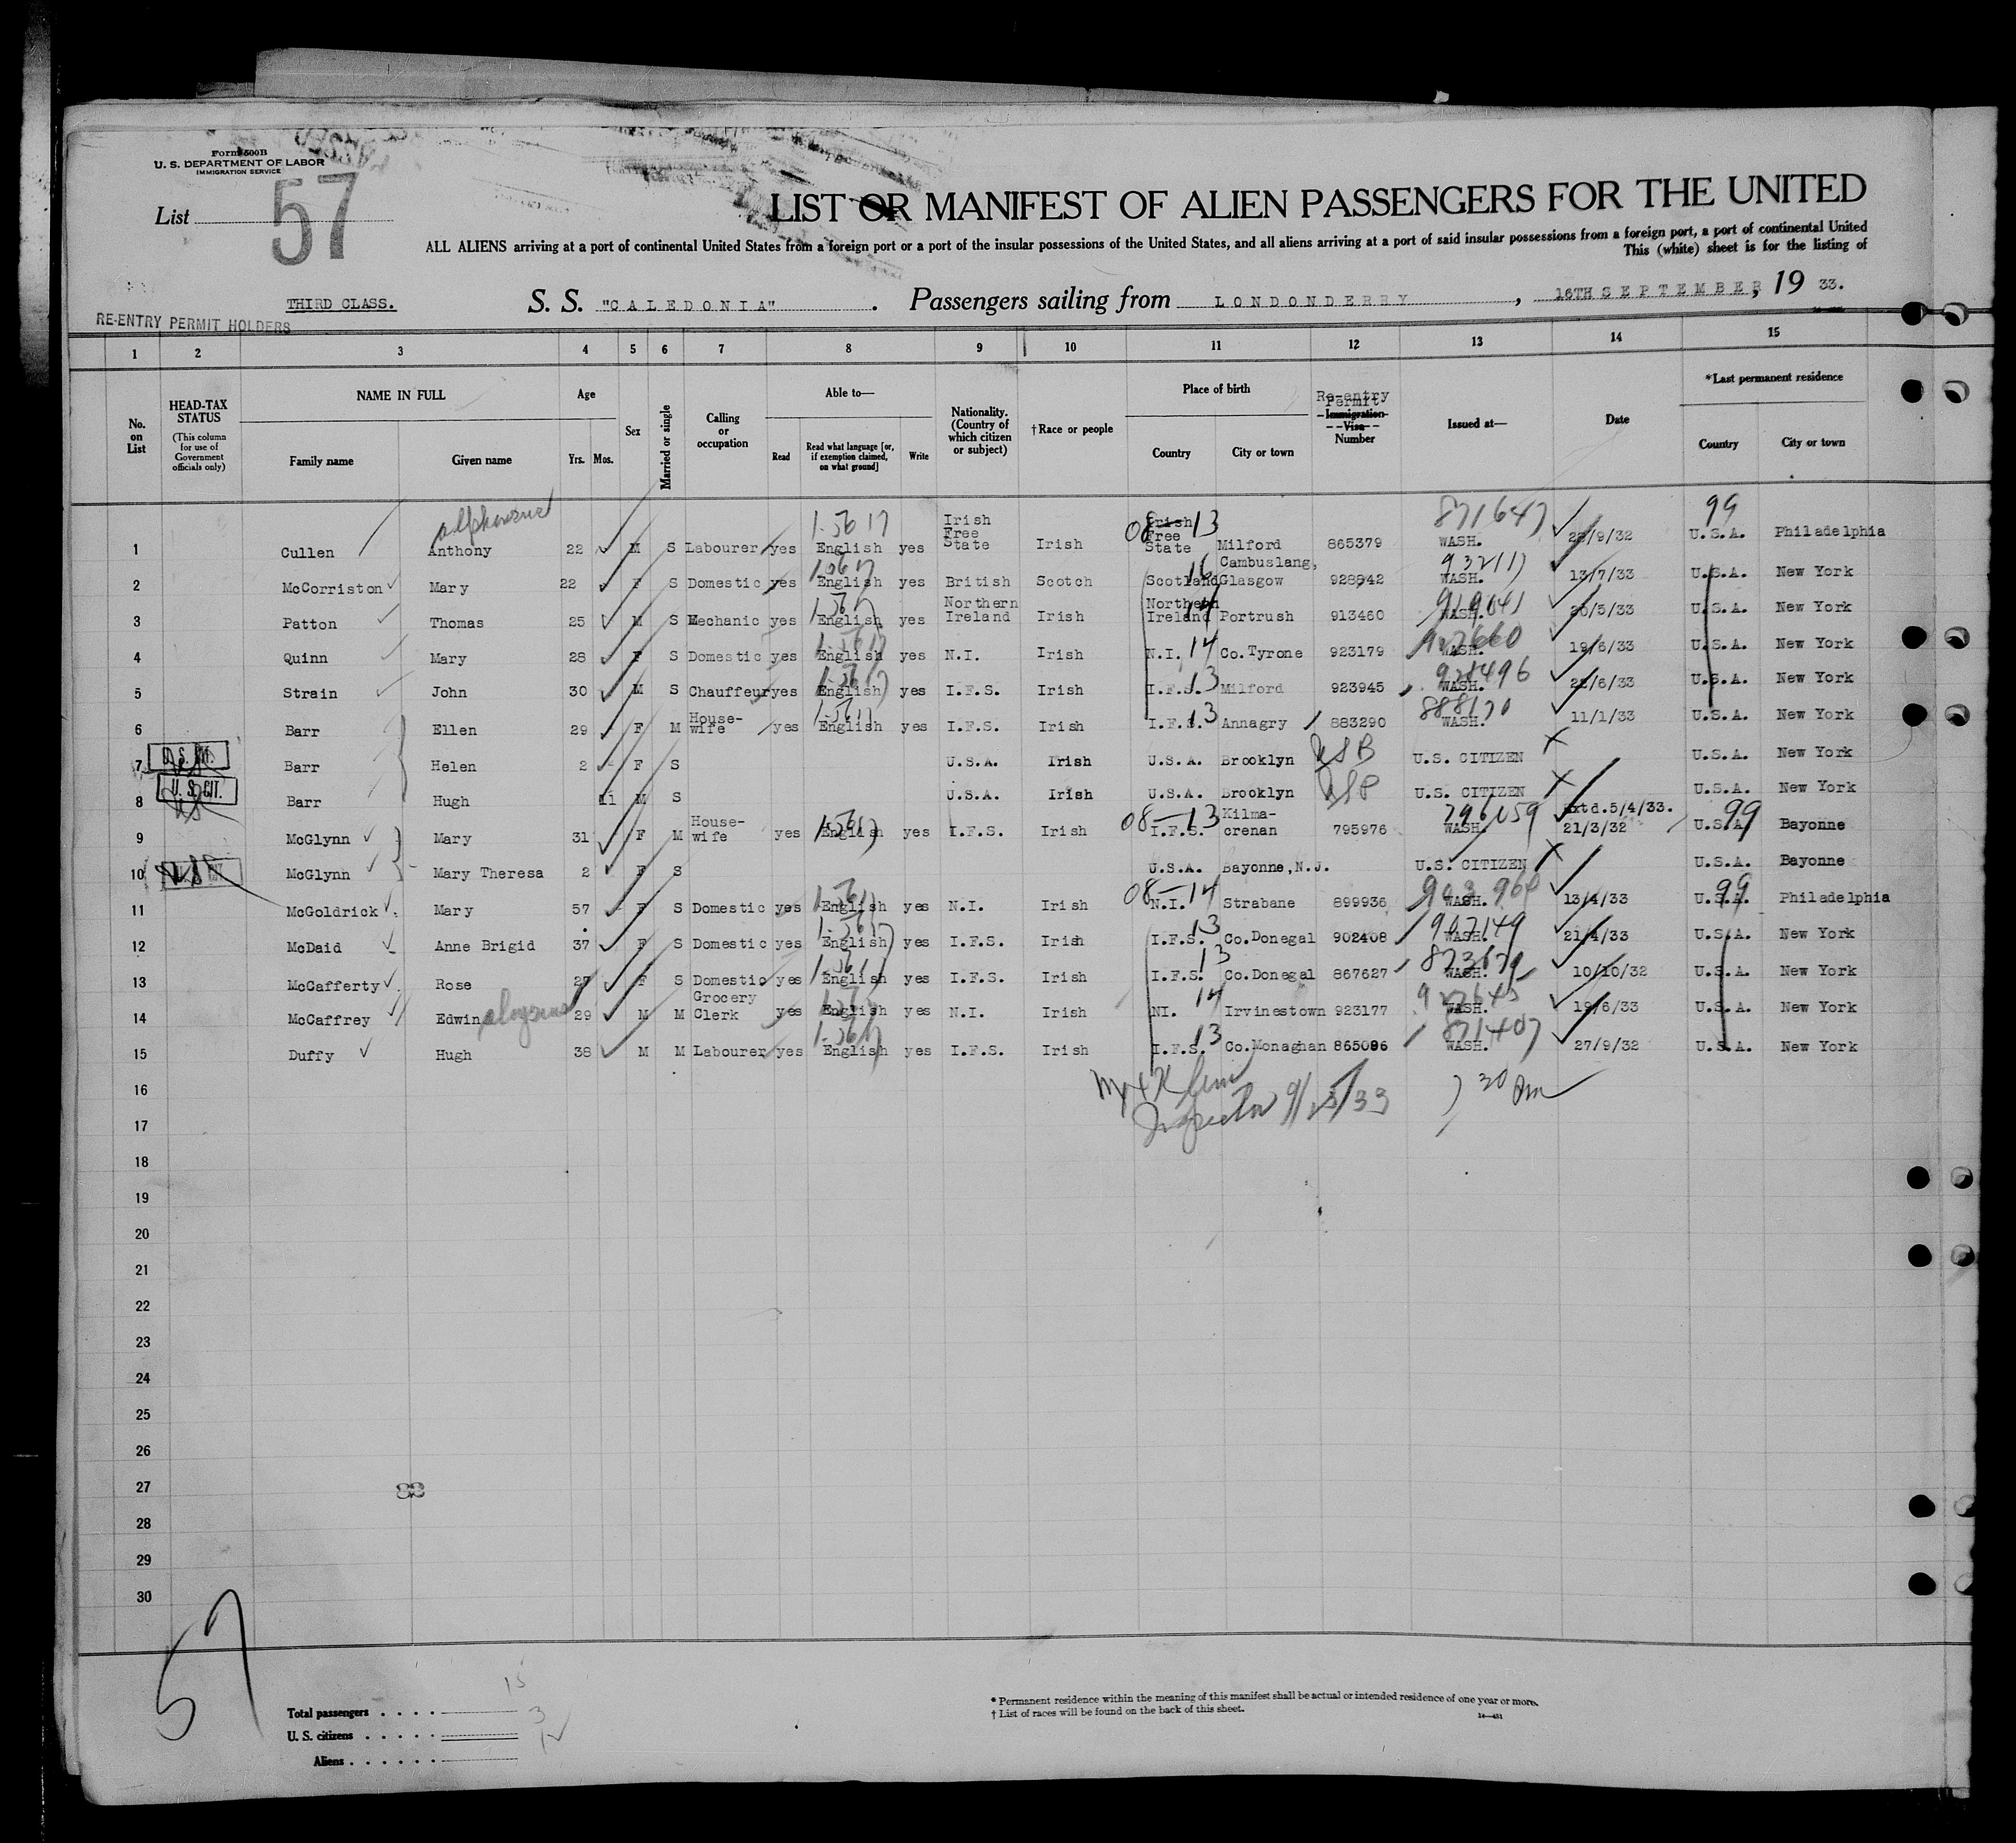 Form 500B
U. S. DEPARTMENT OF LABOR
IMMIGRATION SERVICE
List 57
LIST OR MANIFEST OF ALIEN PASSENGERS FOR THE UNITED
ALL ALIENS arriving at a port of continental United States from a foreign port or a port of the insular possessions of the United States, and all aliens arriving at a port of said insular possessions from a foreign port, a port of continental United
This (white) sheet is for the listing of
THIRD CLASS. S. S. "CALEDONIA". Passengers sailing from LONDONDERRY, 16TH SEPTEMBER, 19 33.
RE-ENTRY PERMIT HOLDERS
1 2 3 4 5 6 7 8 9 10 11 12 13 14 15
No. on List HEAD-TAX STATUS (This column for use of Government officials only) NAME IN FULL Family name Given name Age Yrs. Mos. Sex Married or single Calling or occupation Able to— Read Read what language [or, if exemption claimed, on what ground] Write Nationality. (Country of which citizen or subject) †Race or people Place of birth Country City or town Re-entry Permit Immigration Visa Number Issued at— Date *Last permanent residence Country City or town
alphonsus 1-5617 871647 99
1 Cullen Anthony 22 M S Labourer yes English yes Irish Free State Irish 08-13 Irish Free State Milford 865379 WASH. 28/9/32 U.S.A. Philadelphia
2 McCorriston Mary 22 F S Domestic yes English yes British Scotch 16 Scotland Cambuslang, Glasgow 928842 WASH. 13/7/33 U.S.A. New York
3 Patton Thomas 25 M S Mechanic yes 1-5617 English yes Northern Ireland Irish Northern Ireland 14 Portrush 913460 919041 WASH. 20/5/33 U.S.A. New York
4 Quinn Mary 28 F S Domestic yes 1-5617 English yes N.I. Irish N.I. 14 Co.Tyrone 923179 927660 WASH. 19/6/33 U.S.A. New York
5 Strain John 30 M S Chauffeur yes 1-5617 English yes I.F.S. Irish I.F.S. 13 Milford 923945 WASH. 22/6/33 U.S.A. New York
6 Barr Ellen 29 F M House-wife yes 1-5617 English yes I.F.S. Irish I.F.S. 13 Annagry 883290 888170 WASH. 11/1/33 U.S.A. New York
7 U.S. CIT. Barr Helen 2 F S U.S.A. Irish U.S.A. Brooklyn USB U.S. CITIZEN X U.S.A. New York
8 U.S. CIT. Barr Hugh 11 M S U.S.A. Irish U.S.A. Brooklyn U.S. CITIZEN X U.S.A. New York
9 McGlynn Mary 31 F M House-wife yes 1-5617 English yes I.F.S. Irish 08-13 I.F.S. Kilma-crenan 795976 WASH. Extd.5/4/33. 21/3/32 99 U.S.A. Bayonne
10 McGlynn Mary Theresa 2 F S U.S.A. Bayonne, N.J. U.S. CITIZEN X U.S.A. Bayonne
11 McGoldrick Mary 57 F S Domestic yes 1-5617 English yes N.I. Irish 08-14 N.I. Strabane 899936 WASH. 13/4/33 99 U.S.A. Philadelphia
12 McDaid Anne Brigid 37 F S Domestic yes 1-5617 English yes I.F.S. Irish 13 I.F.S. Co.Donegal 902408 907149 WASH. 21/4/33 U.S.A. New York
13 McCafferty Rose 27 F S Domestic yes 1-5617 English yes I.F.S. Irish 13 I.F.S. Co.Donegal 867627 WASH. 10/10/32 U.S.A. New York
14 McCaffrey Edwin aloysius 29 M M Grocery Clerk yes English yes N.I. Irish 14 NI. Irvinestown 923177 WASH. 19/6/33 U.S.A. New York
15 Duffy Hugh 38 M M Labourer yes 1-5617 English yes I.F.S. Irish 13 I.F.S. Co.Monaghan 865096 871407 WASH. 27/9/32 U.S.A. New York
16
Inspector 9/25/33 7 30 Pm
17
18
19
20
21
22
23
24
25
26
27
28
29
30
57
Total passengers 15
U. S. citizens 3
Aliens 12
* Permanent residence within the meaning of this manifest shall be actual or intended residence of one year or more.
† List of races will be found on the back of this sheet.